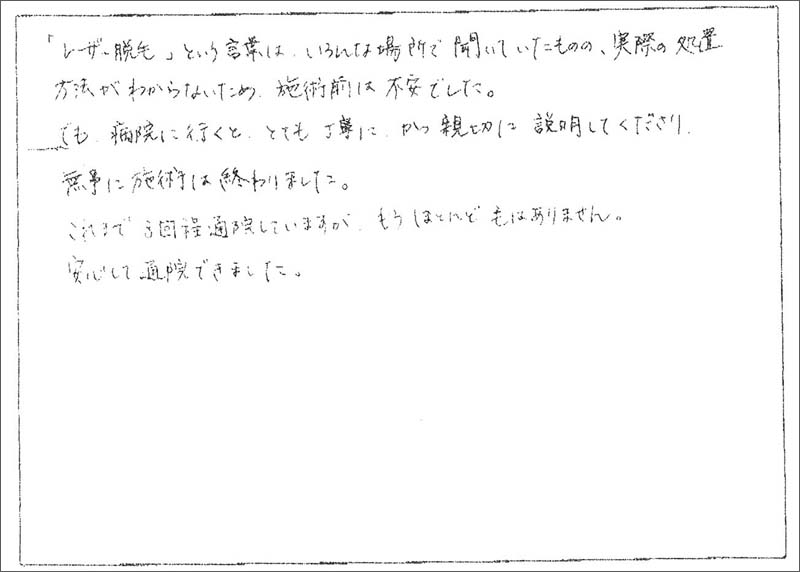 「レーザー脱毛」という言葉は、いろんな場所で聞いていたものの、実際の処置
方法がわからないため、施術前は不安でした。
でも、病院に行くと、とても丁寧に、かつ親切に説明してくださり、
無事に施術は終わりました。
これまで3回程通院していますが、もうほとんど毛はありません。
安心して通院できました。